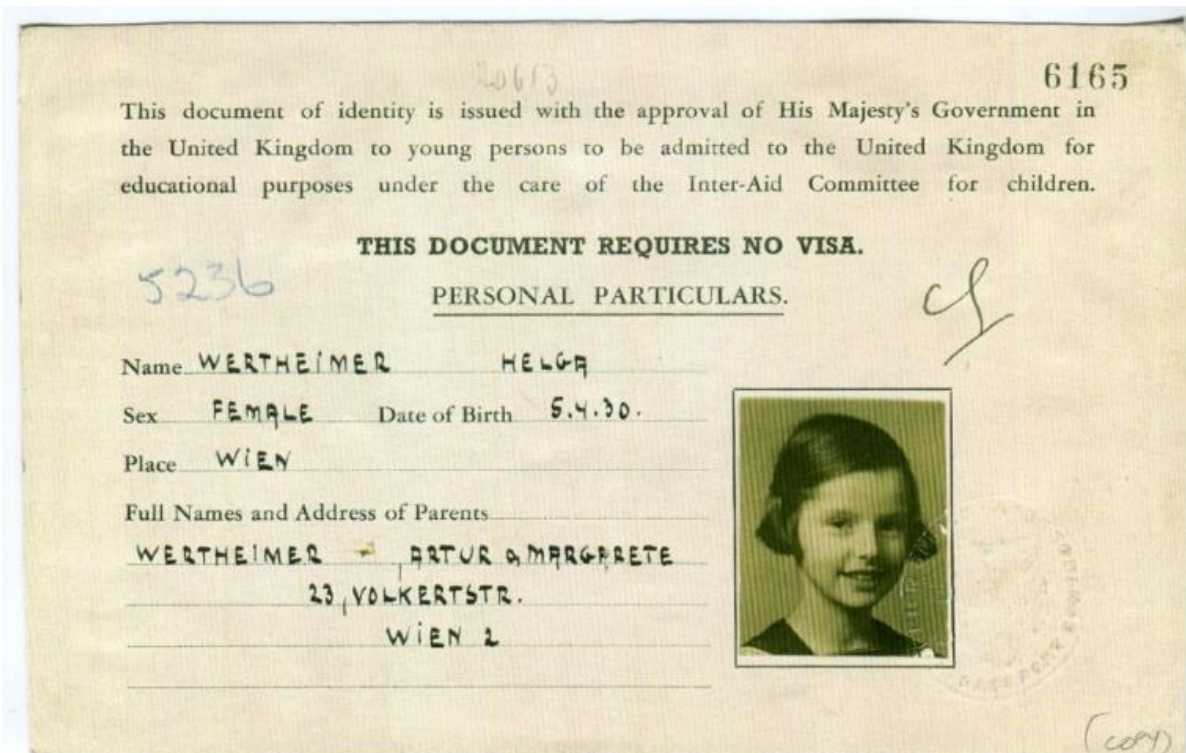 6165
This document of identity is issued with the approval of His Majesty's Government in
the United Kingdom to young persons to be admitted to the United Kingdom for
educational purposes under the care of the Inter-Aid Committee for children.
THIS DOCUMENT REQUIRES NO VISA.
5236
PERSONAL PARTICULARS.
Name WERTHEIMER HELGA
Sex FEMALE Date of Birth 5.4.30.
Place WIEN
Full Names and Address of Parents
WERTHEIMER - ARTUR & MARGARETE
23, VOLKERTSTR.
WIEN 2
(COPY)